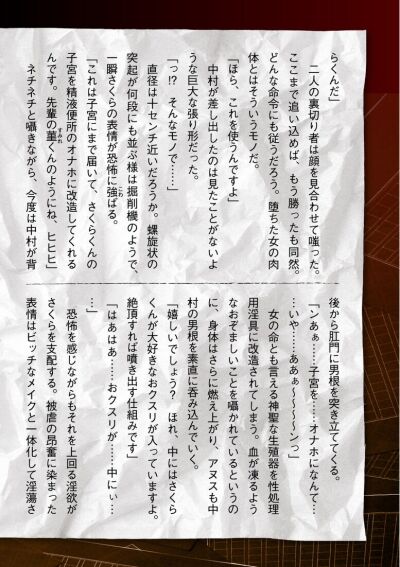 らくんだ」
　二人の裏切り者は顔を見合わせて嗤った。
ここまで追い込めば、もう勝ったも同然。
どんな命令にも従うだろう。堕ちた女の肉
体とはそういうモノだ。
「ほら、これを使うんですよ」
　中村が差し出したのは見たことがないよ
うな巨大な張り形だった。
「っ!?　そんなモノで……」
　直径は十センチ近いだろうか。螺旋状の
突起が何段にも並ぶ様は掘削機のようで、
一瞬さくらの表情が恐怖に強ばる。
「これは子宮にまで届いて、さくらくんの
子宮を精液便所のオナホに改造してくれる
んです。先輩の菫くんのようにね、ヒヒヒ」
　ネチネチと囁きながら、今度は中村が背
後から肛門に男根を突き立ててくる。
「ンあぁ……子宮を……オナホになんて…
…いや……ああぁ〜〜〜〜ンっ」
　女の命とも言える神聖な生殖器を性処理
用淫具に改造されてしまう。血が凍るよう
なおぞましいことを囁かれているというの
に、身体はさらに燃え上がり、アヌスも中
村の男根を素直に呑み込んでいく。
「嬉しいでしょう？　ほれ、中にはさくら
くんが大好きなおクスリが入っていますよ。
絶頂すれば噴き出す仕組みです」
「はあはあ……おクスリが……中にぃ…
…」
　恐怖を感じながらもそれを上回る淫欲が
さくらを支配する。被虐の昂奮に染まった
表情はビッチなメイクと一体化して淫蕩さ